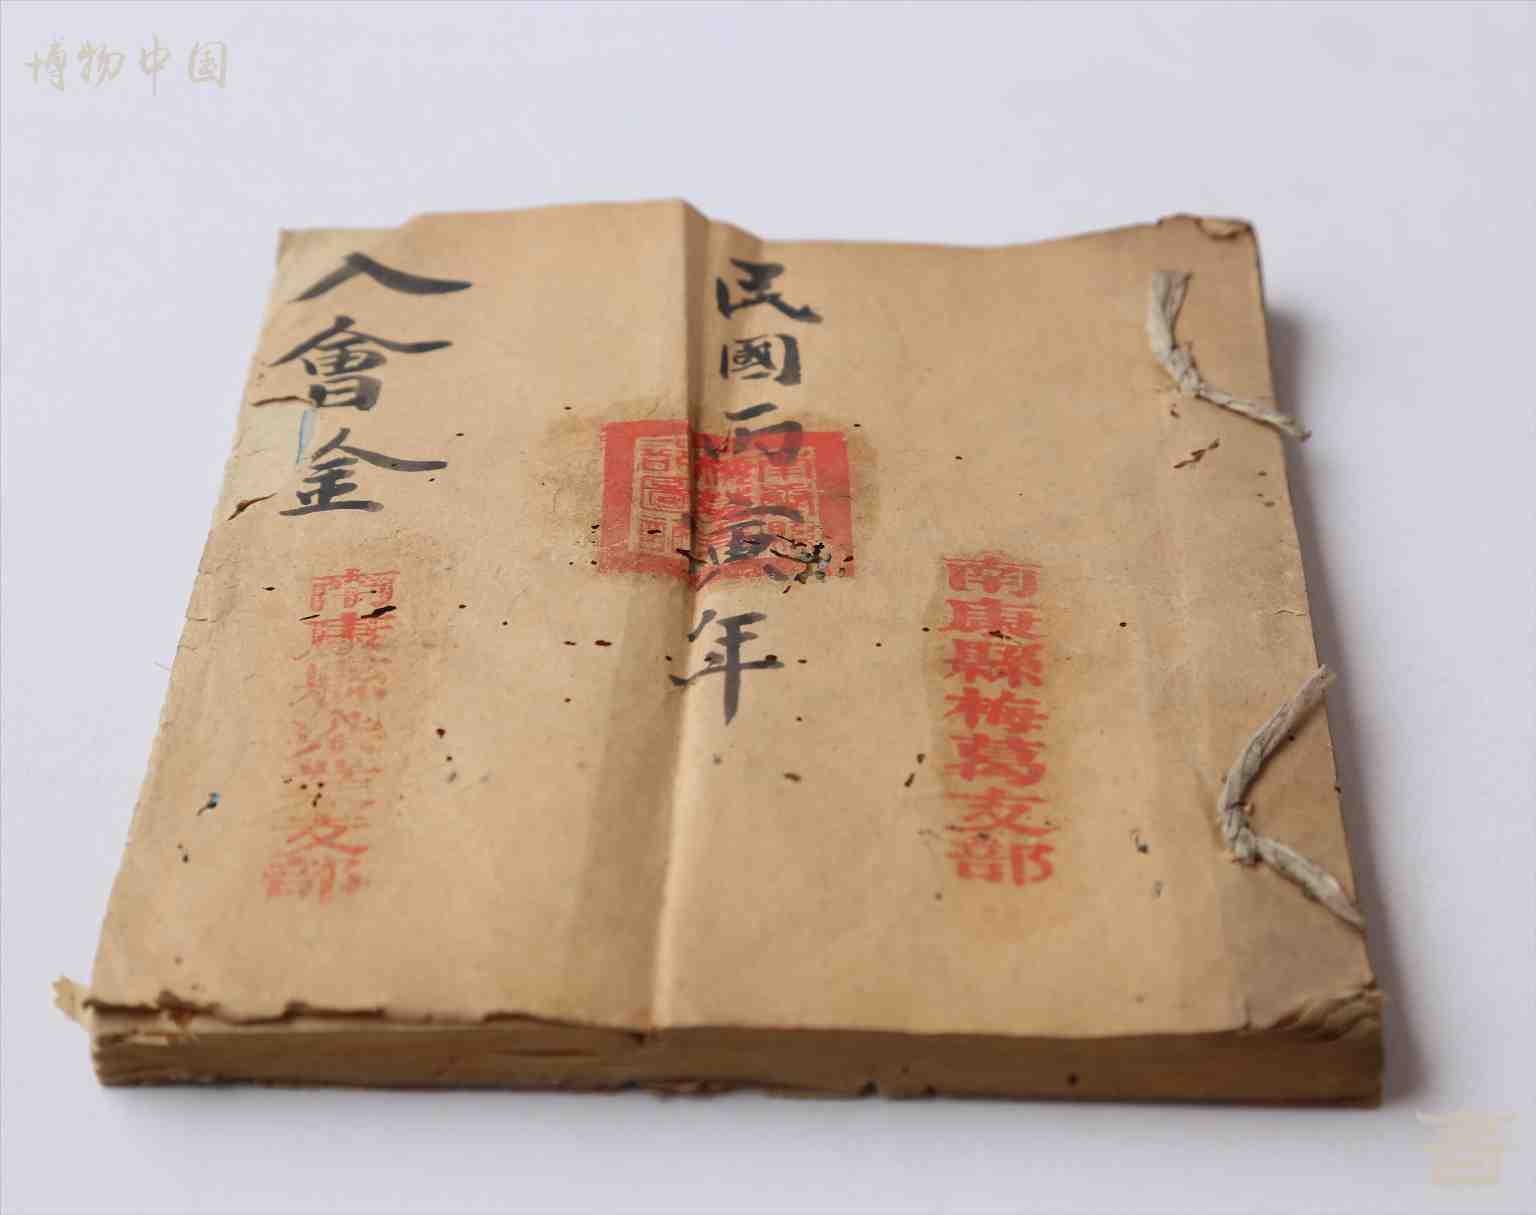 博物中国
南康縣梅葛支部
民國丙寅年
入會金
南康縣梁龍支部